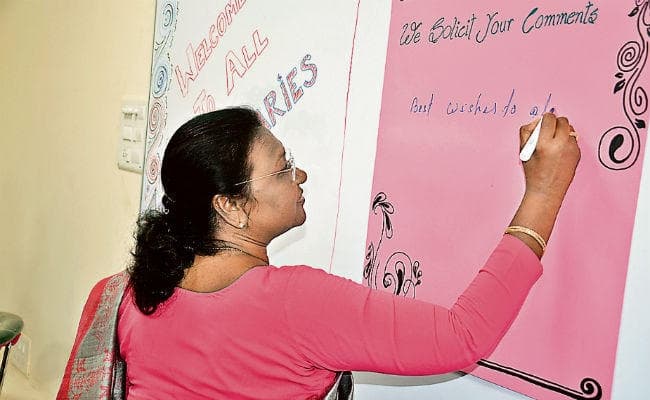 WELCOME
TO ALL
ARIES
We Solicit Your Comments
Best wishes to